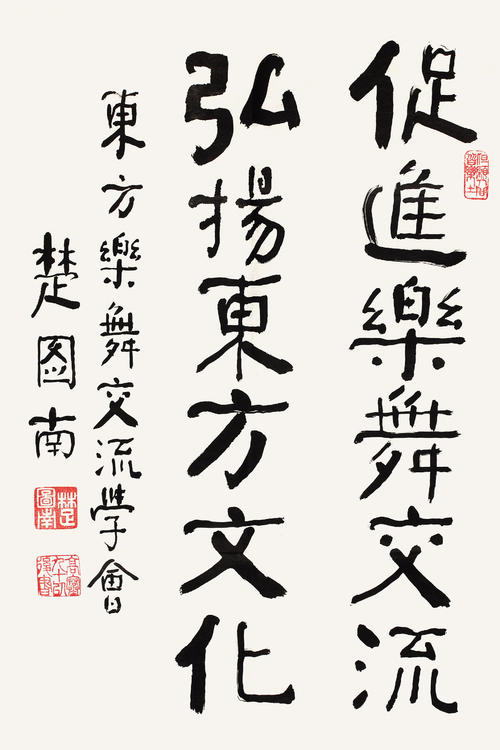 促進樂舞交流
弘揚東方文化
東方樂舞交流學會
楚图南
楚圖南